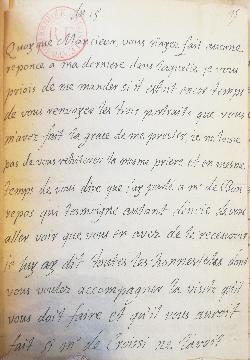 ce 15
95
Quoique Monsieur, vous n'ayez fait aucune
reponce a ma derniere dans laquelle je vous
priois de me mander s'il estoit encor temps
de vous renvoyer les trois portraits que vous
m'avez fait la grace de me prester, je ne laisse
pas de vous reiterer la mesme priere et en mesme
temps de vous dire que j'ay parlé a mr de Bon
repos qui tesmoigne autant d'envie de vous
aller voir que vous en avez de le recevoir
je luy ay dit toutes les honnestetés dont
vous voulez accompagner la visite qu'il
vous doit faire et qu'il vous auroit
fait si mr de ne l'avoit